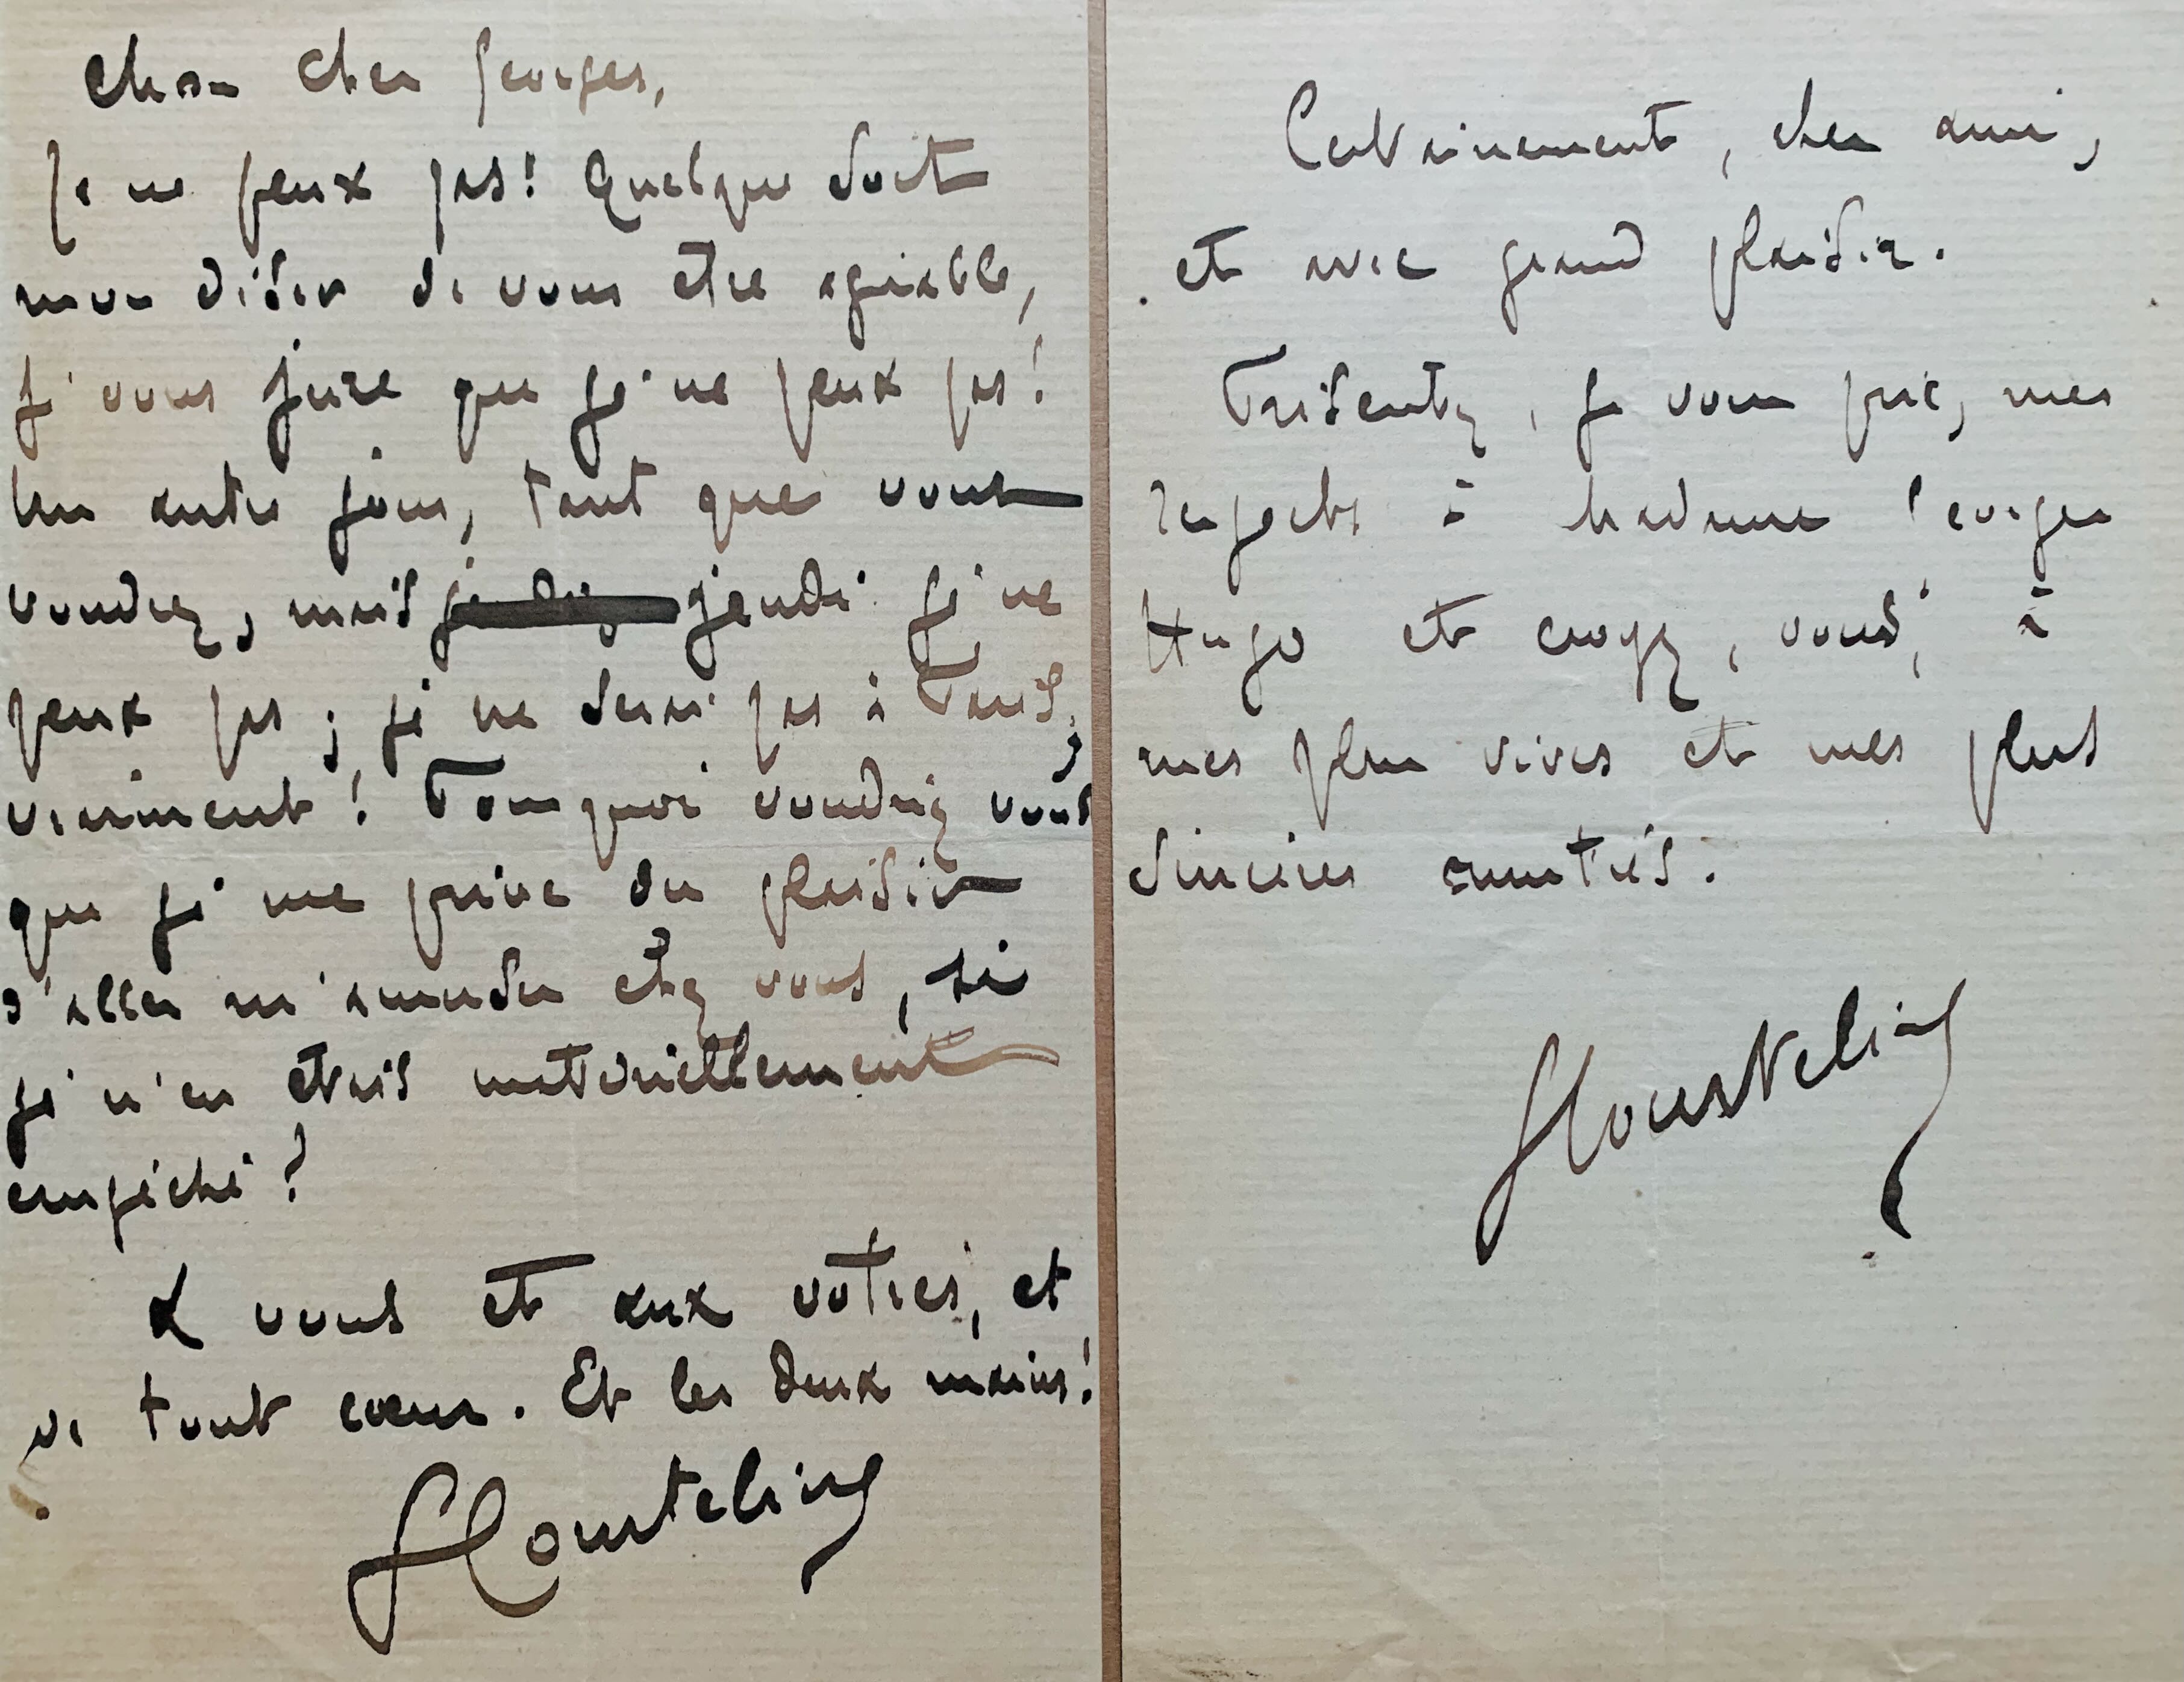 Mon cher Georges,
Je ne peux pas! Quelque soit
mon désir de vous être agréable,
je vous jure que je ne peux pas!
Un autre jour, tant que vous
voudrez, mais jeudi je ne
peux pas; je ne serai pas à Paris,
vraiment! Pourquoi voudriez vous
que je me prive du plaisir
d'aller m'amuser chez vous, si
je n'en étais matériellement
empêché?
A vous et aux votres, et
de tout cœur. Et les deux mains!
G Courteline
Certainement, cher ami,
et avec grand plaisir.
Présentez, je vous prie, mes
respects à Madame Georges
Hugo et croyez, vous, à
mes plus vives et mes plus
sincères amitiés.
G Courteline